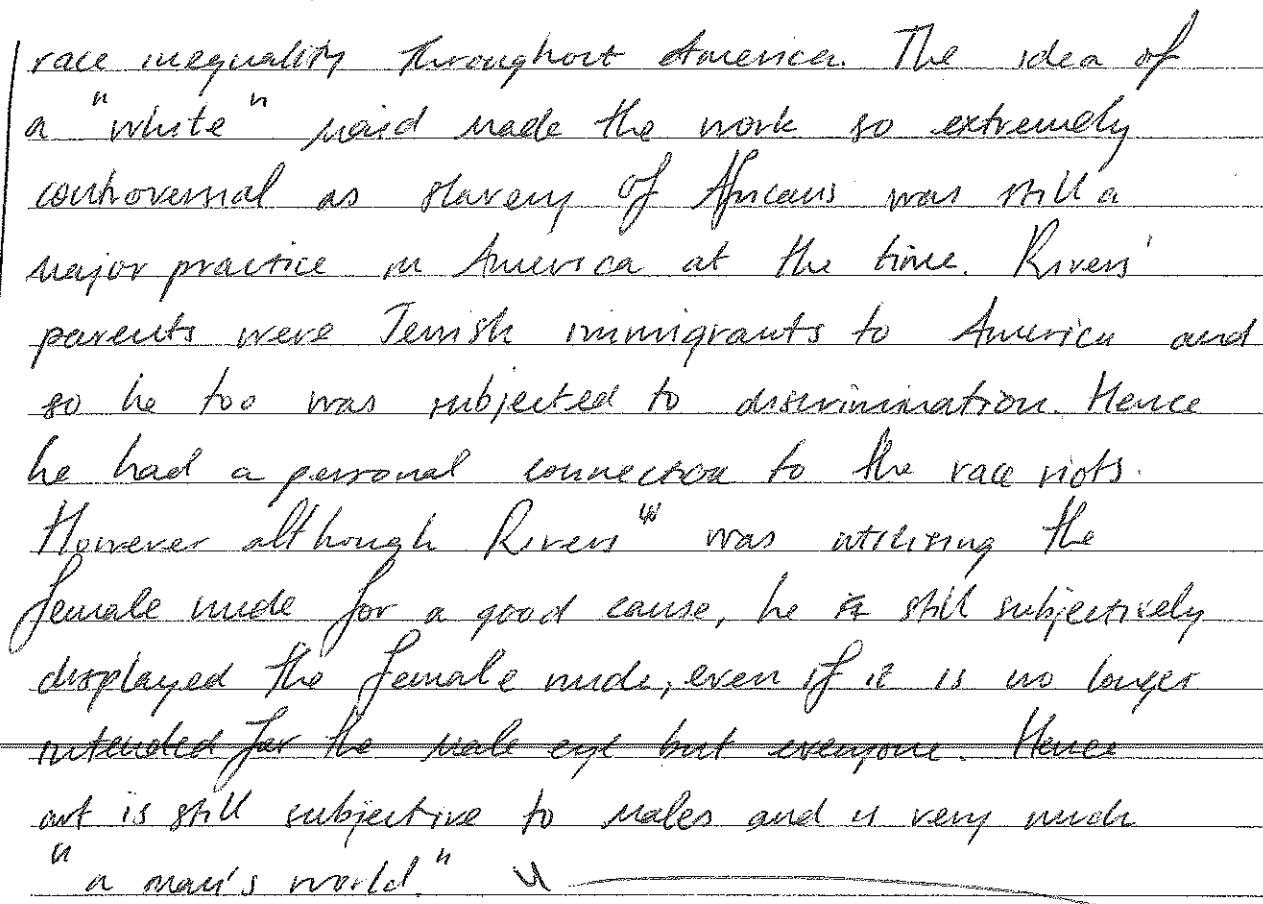 race inequality throughout America. The idea of
a "white" maid made the work so extremely
controversial as slavery of Africans was still a
major practice in America at the time. Rivers'
parents were Jewish immigrants to America and
so he too was subjected to discrimination. Hence
he had a personal connection to the race riots.
However although Rivers was utilising the
female nude for a good cause, he still subjectively
displayed the female nude, even if it is no longer
intended for the male eye but everyone. Hence
art is still subjective to males and is very much
"a man's world."